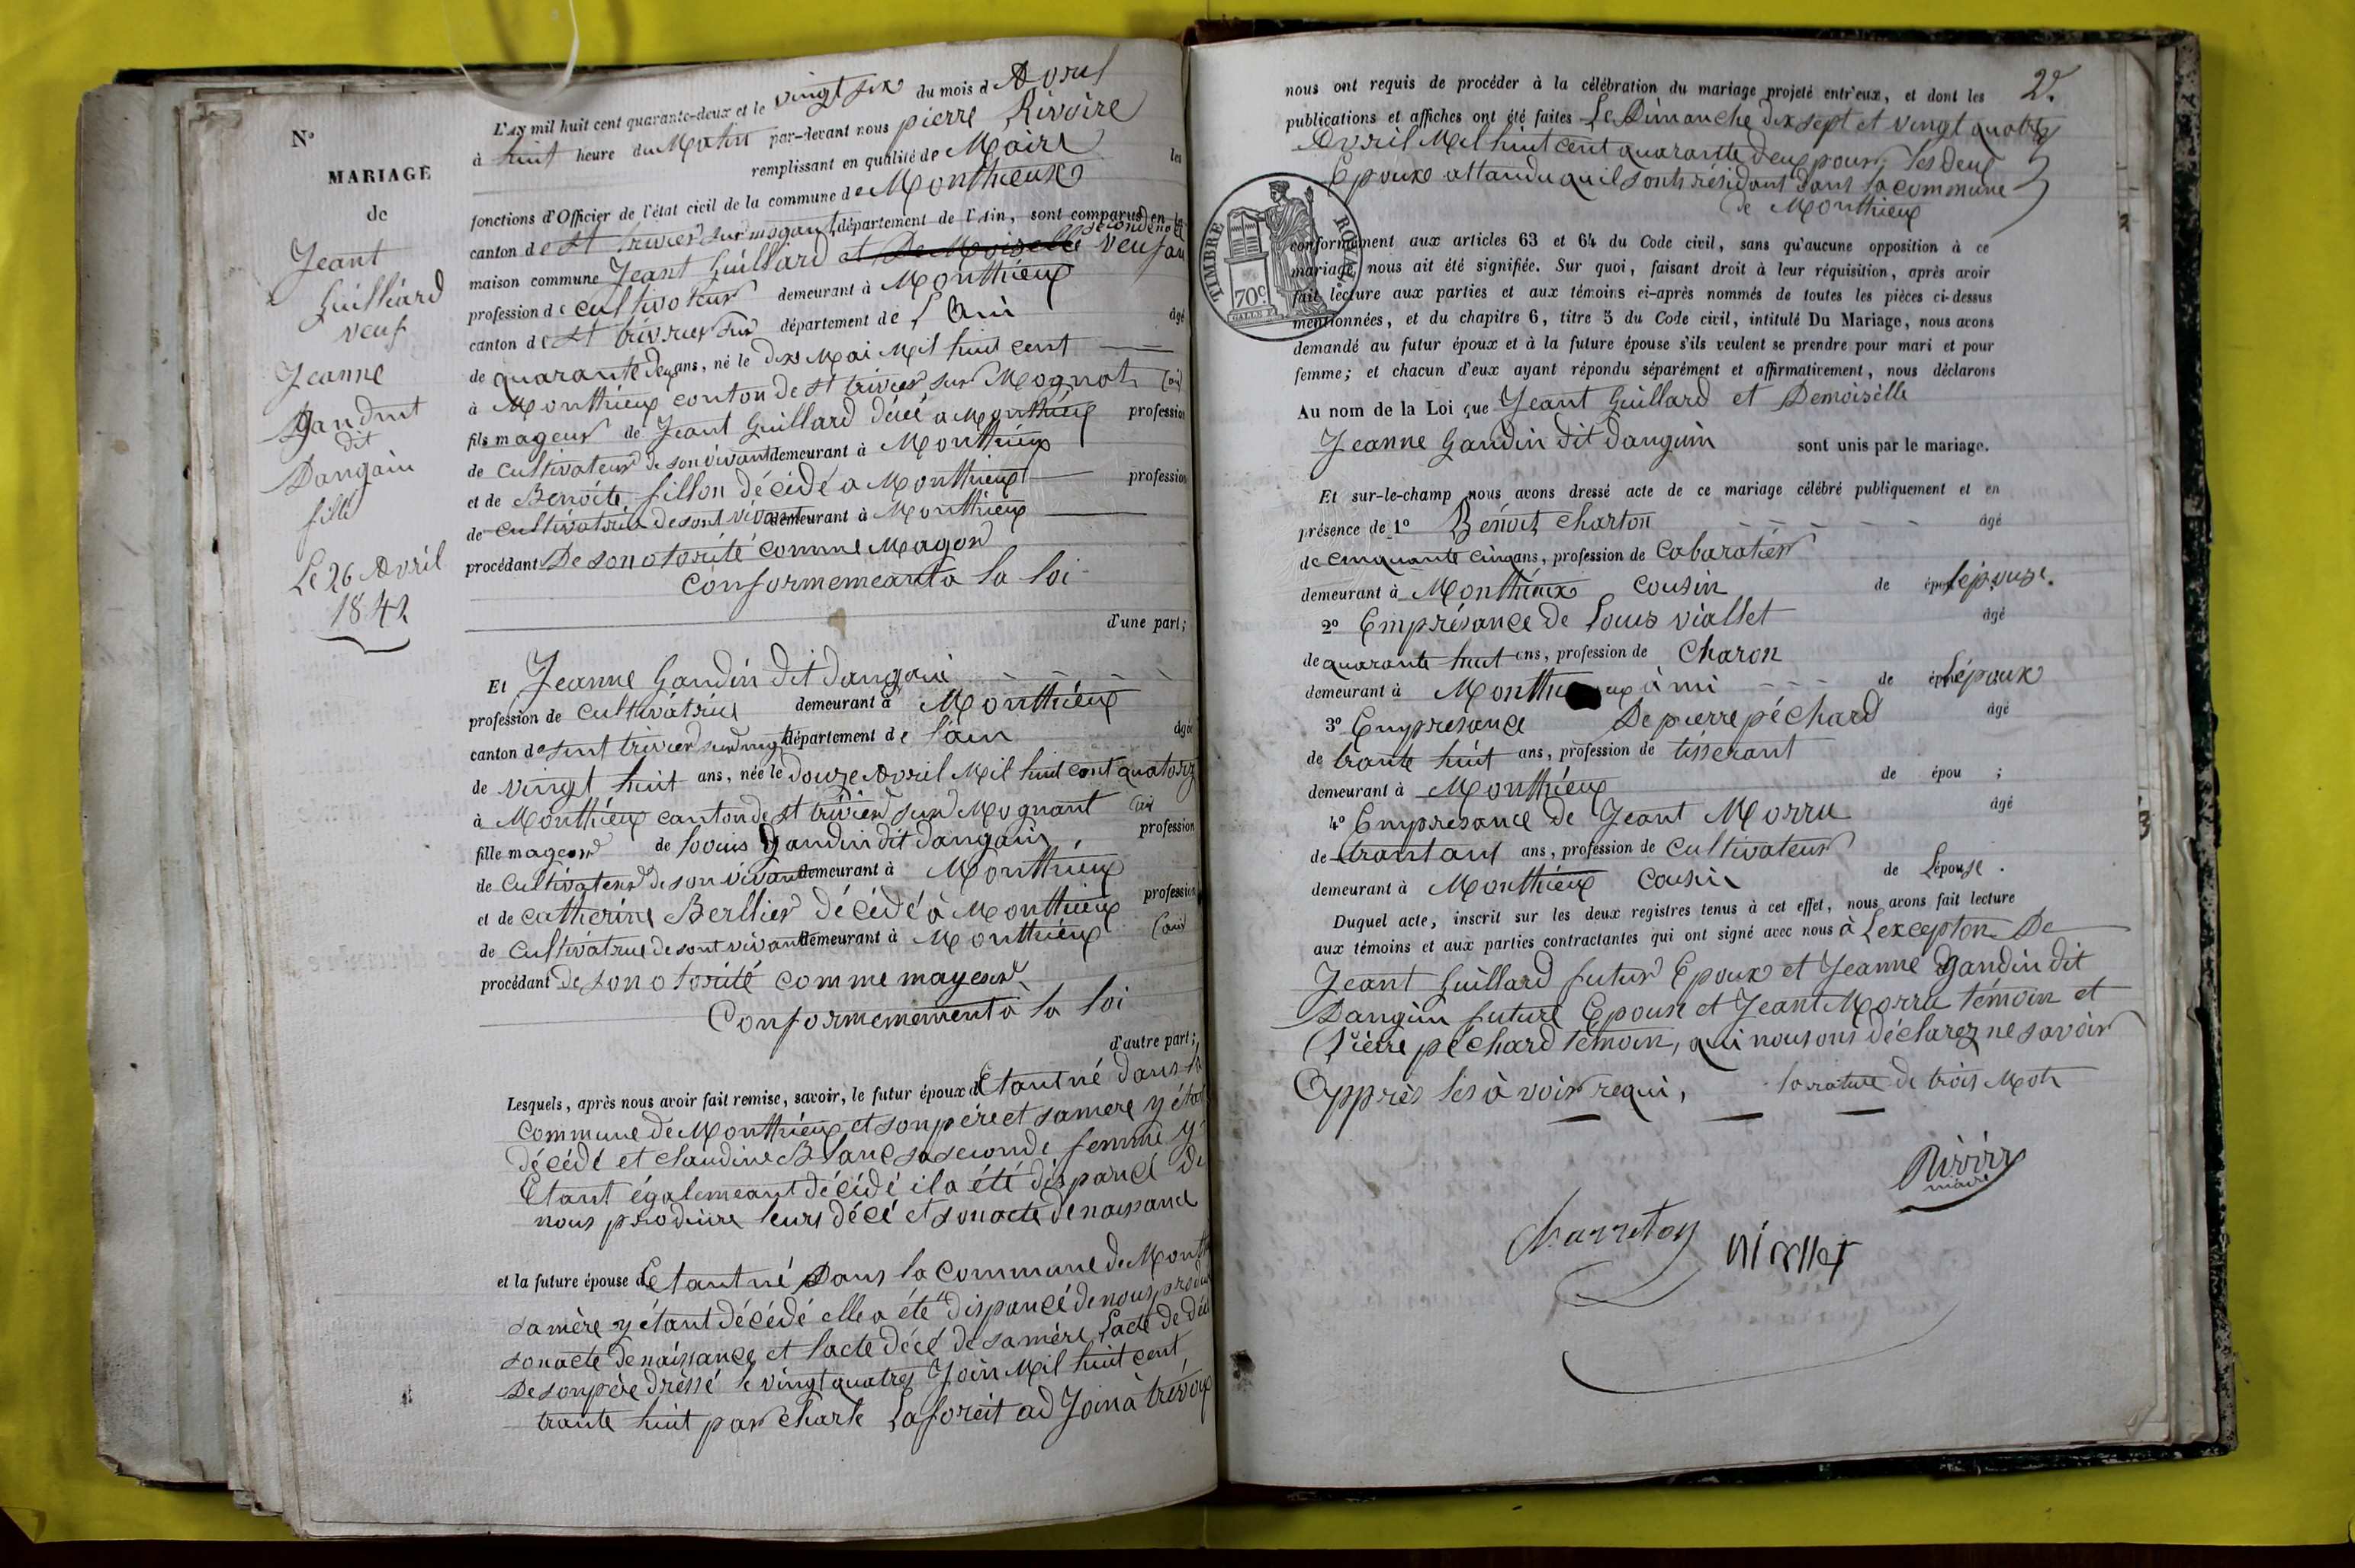 N°
MARIAGE
de
Jeant
Guilliard
veuf
Jeanne
Gandint
dit
Dangain
fille
Le 26 Avril
1842
L'AN mil huit cent quarante-deux et le vingt six du mois d Avril
à huit heure du Matin par-devant nous pierre Rivoire
remplissant en qualité de Maire les
fonctions d'Officier de l'état civil de la commune de Monthieux
canton de St trivier sur mogant, département de l'Ain, sont comparus en la
maison commune Jeant Guillard et De Moiselle veuf au
profession de cultivateur demeurant à Monthieux
canton de St trivier sur département de l'Ain âgé
de quarante deux ans, né le dix Mai Mil huit cent
à Monthieux conton de st trivier sur Mognat (ain)
fils mageur de Jeant Guillard décé a Monthieux profession
de Cultivateur de son vivant demeurant à Monthieux
et de Benoite fillon décédé a Monthieux profession
de cultivatrice de sont vivant demeurant à Monthieux
procédant De son otorité comme Magor
conformemeant a la loi
d'une part;
Et Jeanne Gandin dit dangain
profession de Cultivatrice demeurant à Monthieux
canton de sint trivier sur mog département de l'ain âgée
de vingt huit ans, née le douze Avril Mil huit cent quatorz
à Monthieux canton de st trivier sur Mognant (ain
fille mageur de Louis Gandin dit dangain, profession
de Cultivateur de son vivant demeurant à Monthieux
et de catherine Berllier décédé à Monthieux profession
de Cultivatrice de sont vivant demeurant à Monthieux (ain)
procédant de son otorité comme mayeur
Conformemement a la loi
d'autre part;
Lesquels, après nous avoir fait remise, savoir, le futur époux d Etant né dans la
Commune de Monthieux et son père et sa mere y étan
décédé et claudine Blanc sa seconde femme y
Etant égalemeant décédé il a été dispancé de
nous prodiuire leurs décé et son acte de naissance
et la future épouse d Etant né Dans la Commune de Mont
sa mère y étant décédé elle a été dispancé de nous produi
son acte de naissance et lacte décé de sa mère Lacte de décé
De son père dressé le vingt quatre Join Mil huit cent
trante huit par Charle Laforeit ad Join à trévoux
2e.
nous ont requis de procéder à la célébration du mariage projeté entr'eux, et dont les
publications et affiches ont été faites Le Dimanche dix sept et vingt quatre
Avril Mil huit cent quarante deux pour les deux
Epoux attandu quil sonts résidant dans la commune
de Monthieux
TIMBRE ROYAL
70c
conformément aux articles 63 et 64 du Code civil, sans qu'aucune opposition à ce
mariage nous ait été signifiée. Sur quoi, faisant droit à leur réquisition, après avoir
fait lecture aux parties et aux témoins ci-après nommés de toutes les pièces ci-dessus
mentionnées, et du chapitre 6, titre 5 du Code civil, intitulé Du Mariage, nous avons
demandé au futur époux et à la future épouse s'ils veulent se prendre pour mari et pour
femme; et chacun d'eux ayant répondu séparément et affirmativement, nous déclarons
Au nom de la Loi que Jeant Guillard et Demoiselle
Jeanne Gandin dit danguin sont unis par le mariage.
Et sur-le-champ nous avons dressé acte de ce mariage célébré publiquement et en
présence de 1° Benoit charton âgé
de cinquante cinq ans, profession de Cabaratier
demeurant à Monthieux cousin de épou Lépouse.
2° Emprésance de Louis viallet âgé
de quarante huit ans, profession de Charon
demeurant à Monthieux àmi de épou Lépoux
3° Empresance De pierre péchard âgé
de trante huit ans, profession de tisserant
demeurant à Monthieux de épou ;
4° Empresance de Jeant Morru âgé
de trantans ans, profession de Cultivateur
demeurant à Monthieux Cousin de Lépouse.
Duquel acte, inscrit sur les deux registres tenus à cet effet, nous avons fait lecture
aux témoins et aux parties contractantes qui ont signé avec nous à Lexception De
Jeant Guillard futur Epoux et Jeanne Gandin dit
Dangin future Epouse et Jeant Morru témoin et
Pierre péchard témoin, qui nous ons déclarez ne savoir
Apprès les à voir requi, la rature de trois Mots
Rivoire
maire
Charreton viallet